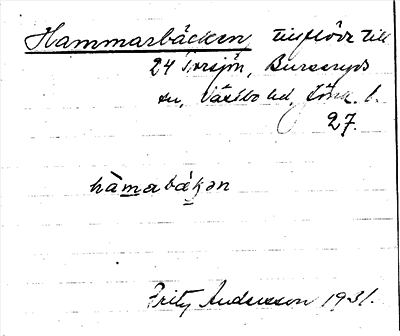 Hammarbäcken, tillflöde till
24 Torsjön, Burseryds
sn, Västbo hd, Jönk. l.
27.
hàmabák̬ən
Fritz Andersson 1931.